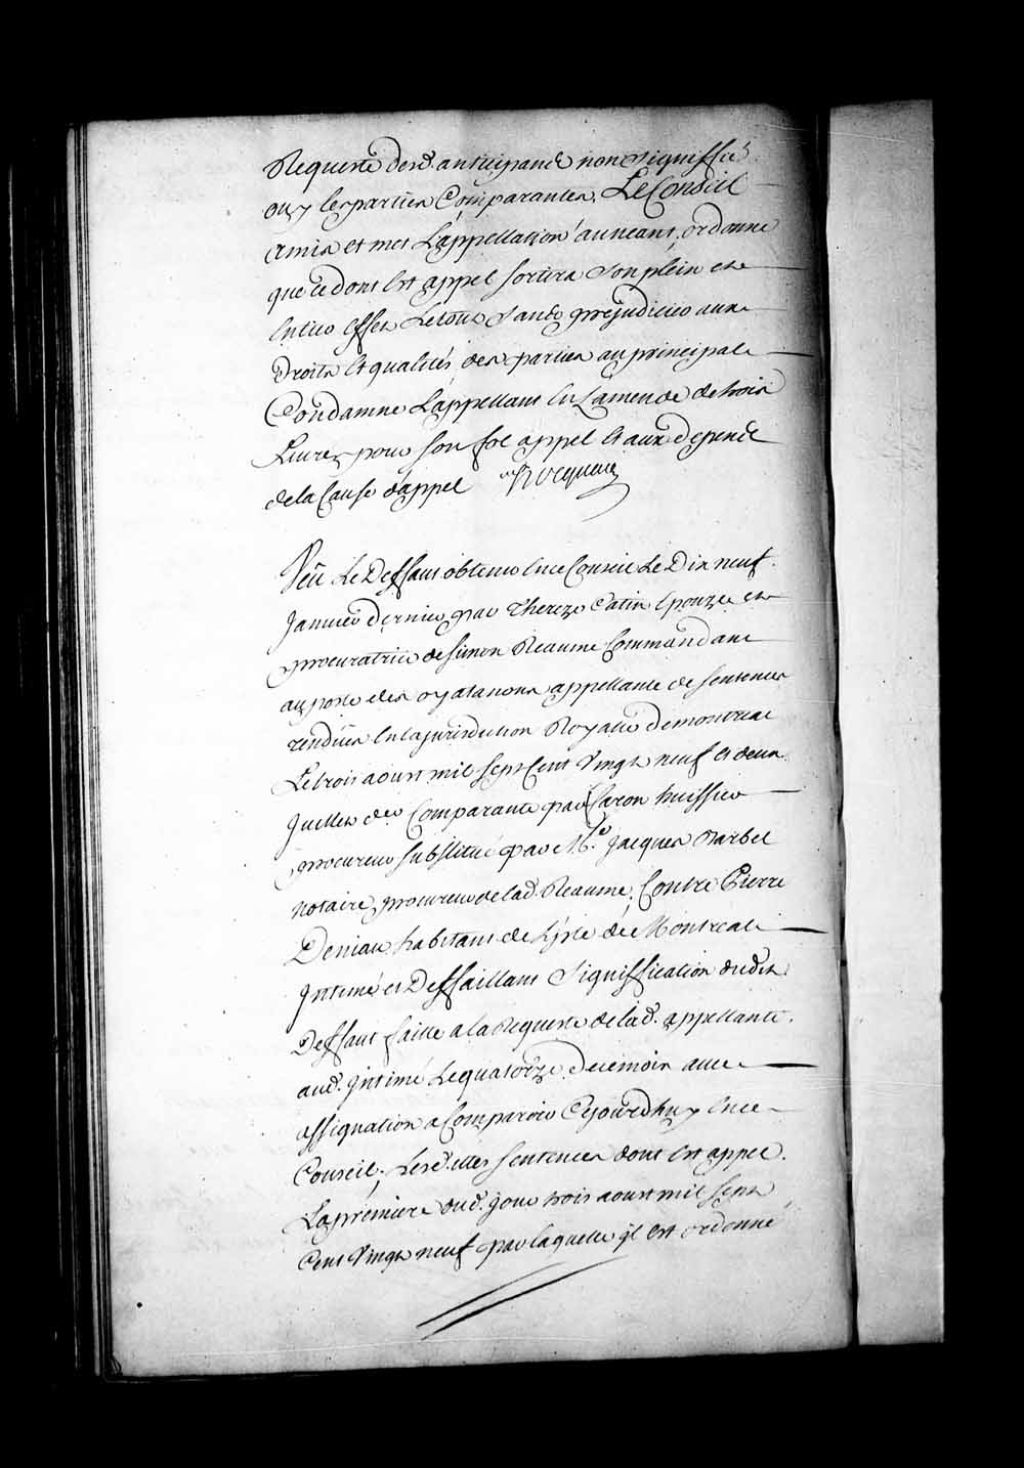 Requeste desd. anticipans non signiffié
ouy les parties Comparantes. Le Conseil
a mis et met L'appellation au neant, ordonne
que ce dont Est appel sortira son plein et
Entier Effet Le tout sans prejudicier aux
Droits Et qualités des parties au principal
Condamne L'appellant En L'amende de trois
Livres pour son fol appel Et aux depens
de la Cause d'appel Hocquart

Veu Le Deffaut obtenu En ce Conseil Le Dix neuf
Janvier dernier par Thereze Catin Epouze et
procuratrice de Simon Reaume Commandant
au poste des oyatanons appellante de sentences
rendües En la jurisdiction Royalle de montreal
Le trois aoust mil sept Cent Vingt neuf Et deux
Juillet der Comparante par Caron huissier
procureur substitué par Me. Jacques Barbel
notaire, procureur de lad. Reaume, Contre Pierre
Deniau habitant de L'jsle de Montreal
Jntimé et Deffaillant Signiffication dudit
Deffaut faitte a la Requeste de lad. appellante
aud. jntimé Le quatorze de ce mois avec
assignation a Comparoir Cejourdhuy En ce
Conseil; Lesd.ittes sentences dont Est appel.
La premiere dud. jour trois aoust mil sept
Cent Vingt neuf par laquelle jl Est ordonné